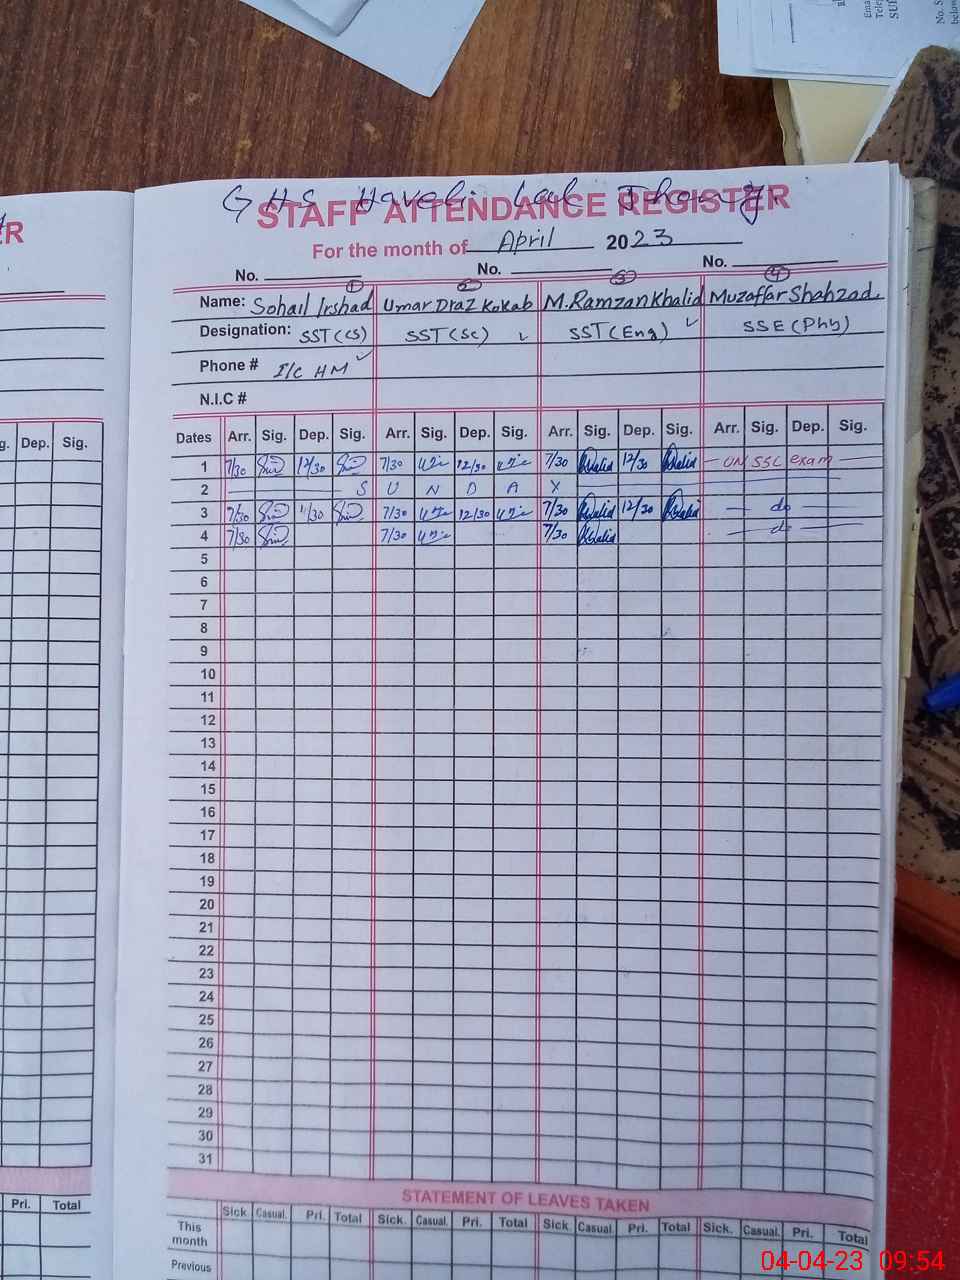 GHS Haveli Lal Jhang.
STAFF ATTENDANCE REGISTER
For the month of April 2023
No. No. No.
1 2 3 4
Name: Sohail Irshad Umar Draz Kokab M.Ramzan Khalid Muzaffar Shahzad.
Designation: SST(CS) SST(Sc) SST(Eng) SSE(Phy)
Phone # I/C HM
N.I.C #
Dates Arr. Sig. Dep. Sig. Arr. Sig. Dep. Sig. Arr. Sig. Dep. Sig. Arr. Sig. Dep. Sig.
1 7/30 12/30 7/30 12/30 7/30 Khalid 12/30 Khalid ON SSC exam
2 S U N D A Y
3 7/30 11/30 7/30 12/30 7/30 Khalid 12/30 Khalid do
4 7/30 7/30 7/30 Khalid do
5
6
7
8
9
10
11
12
13
14
15
16
17
18
19
20
21
22
23
24
25
26
27
28
29
30
31
STATEMENT OF LEAVES TAKEN
Sick Casual. Pri. Total Sick. Casual. Pri. Total Sick. Casual. Pri. Total Sick. Casual. Pri. Total
This month
Previous
ER
g. Dep. Sig.
Pri. Total
04-04-23 09:54